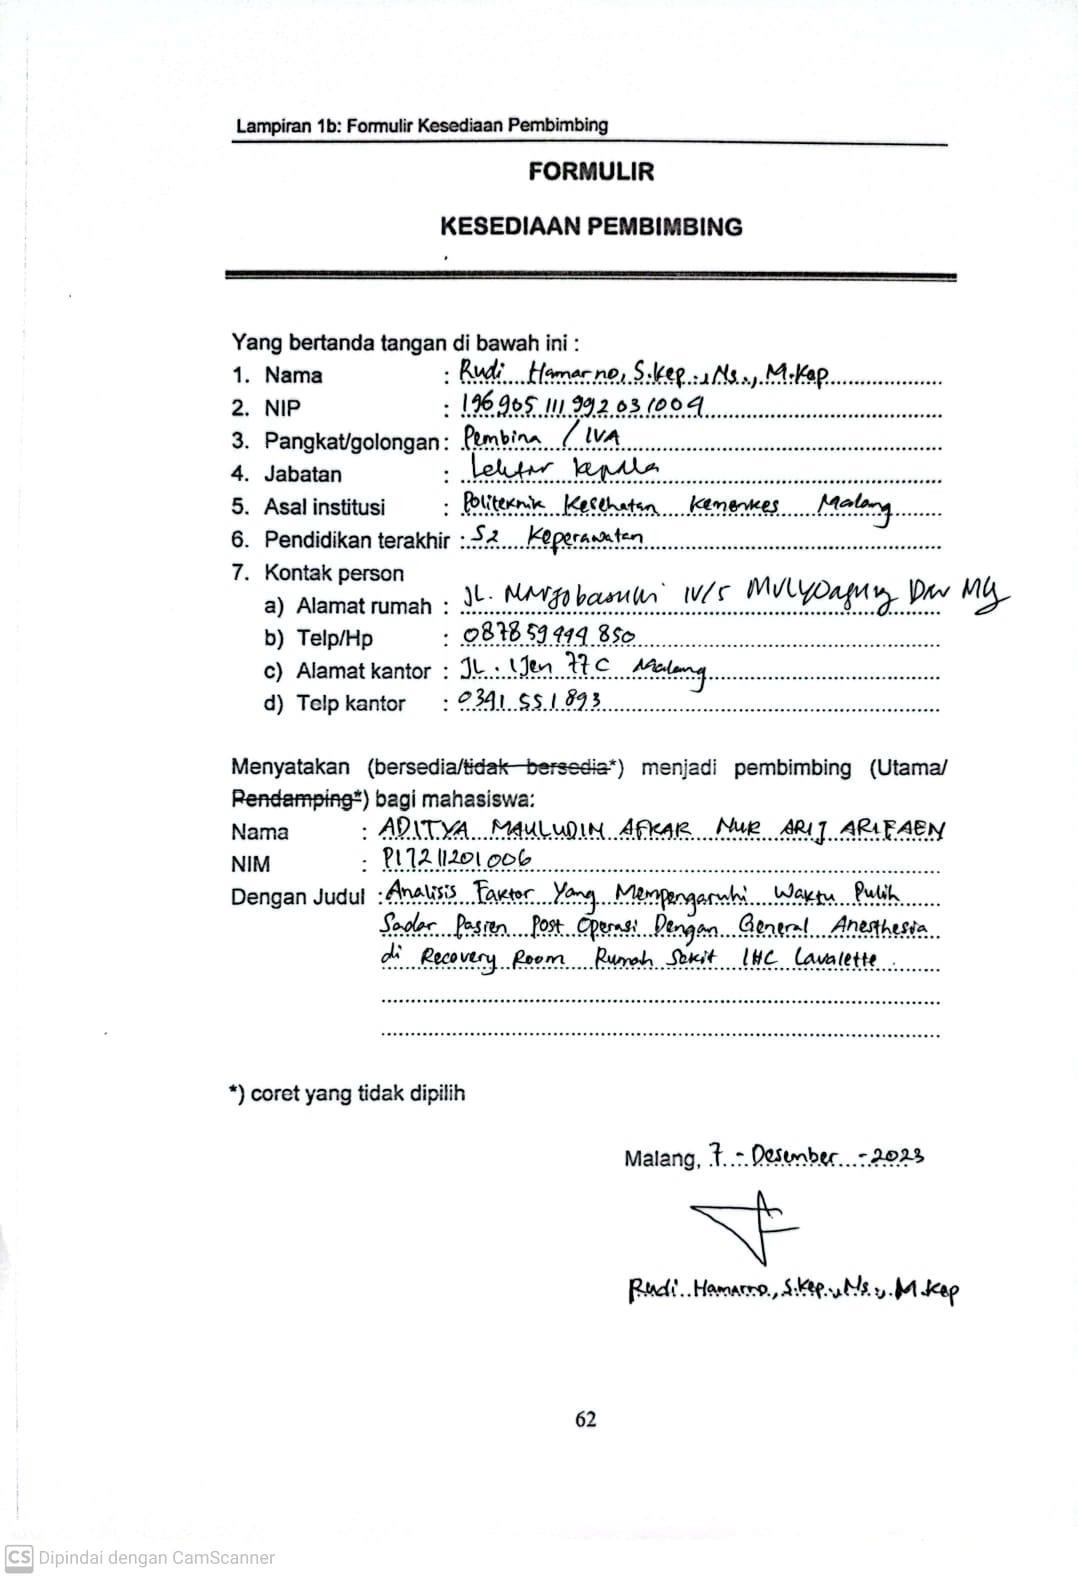 Lampiran 1b: Formulir Kesediaan Pembimbing
FORMULIR
KESEDIAAN PEMBIMBING
Yang bertanda tangan di bawah ini :
1. Nama : Rudi Hamarno, S.Kep., Ns., M.Kep
2. NIP : 196905111992031004
3. Pangkat/golongan : Pembina / IVA
4. Jabatan : Lektor kepala
5. Asal institusi : Politeknik Kesehatan Kemenkes Malang
6. Pendidikan terakhir : S2 Keperawatan
7. Kontak person
a) Alamat rumah : JL. Margobasuki IV/5 Mulyoagung Dau
b) Telp/Hp : 087859999850
c) Alamat kantor : JL. Ijen 77C Malang
d) Telp kantor : 0341 551893
Menyatakan (bersedia/tidak bersedia*) menjadi pembimbing (Utama/
Pendamping*) bagi mahasiswa:
Nama : ADITYA MAULUDIN AFKAR NUR ARIJ ARIFAEN
NIM : P17211201006
Dengan Judul : Analisis Faktor Yang Mempengaruhi Waktu Pulih
Sadar Pasien Post Operasi Dengan General Anesthesia
di Recovery Room Rumah Sakit IHC Lavalette.
*) coret yang tidak dipilih
Malang, 7 - Desember - 2023
Rudi Hamarno, S.Kep., Ns., M.Kep
62
CS Dipindai dengan CamScanner